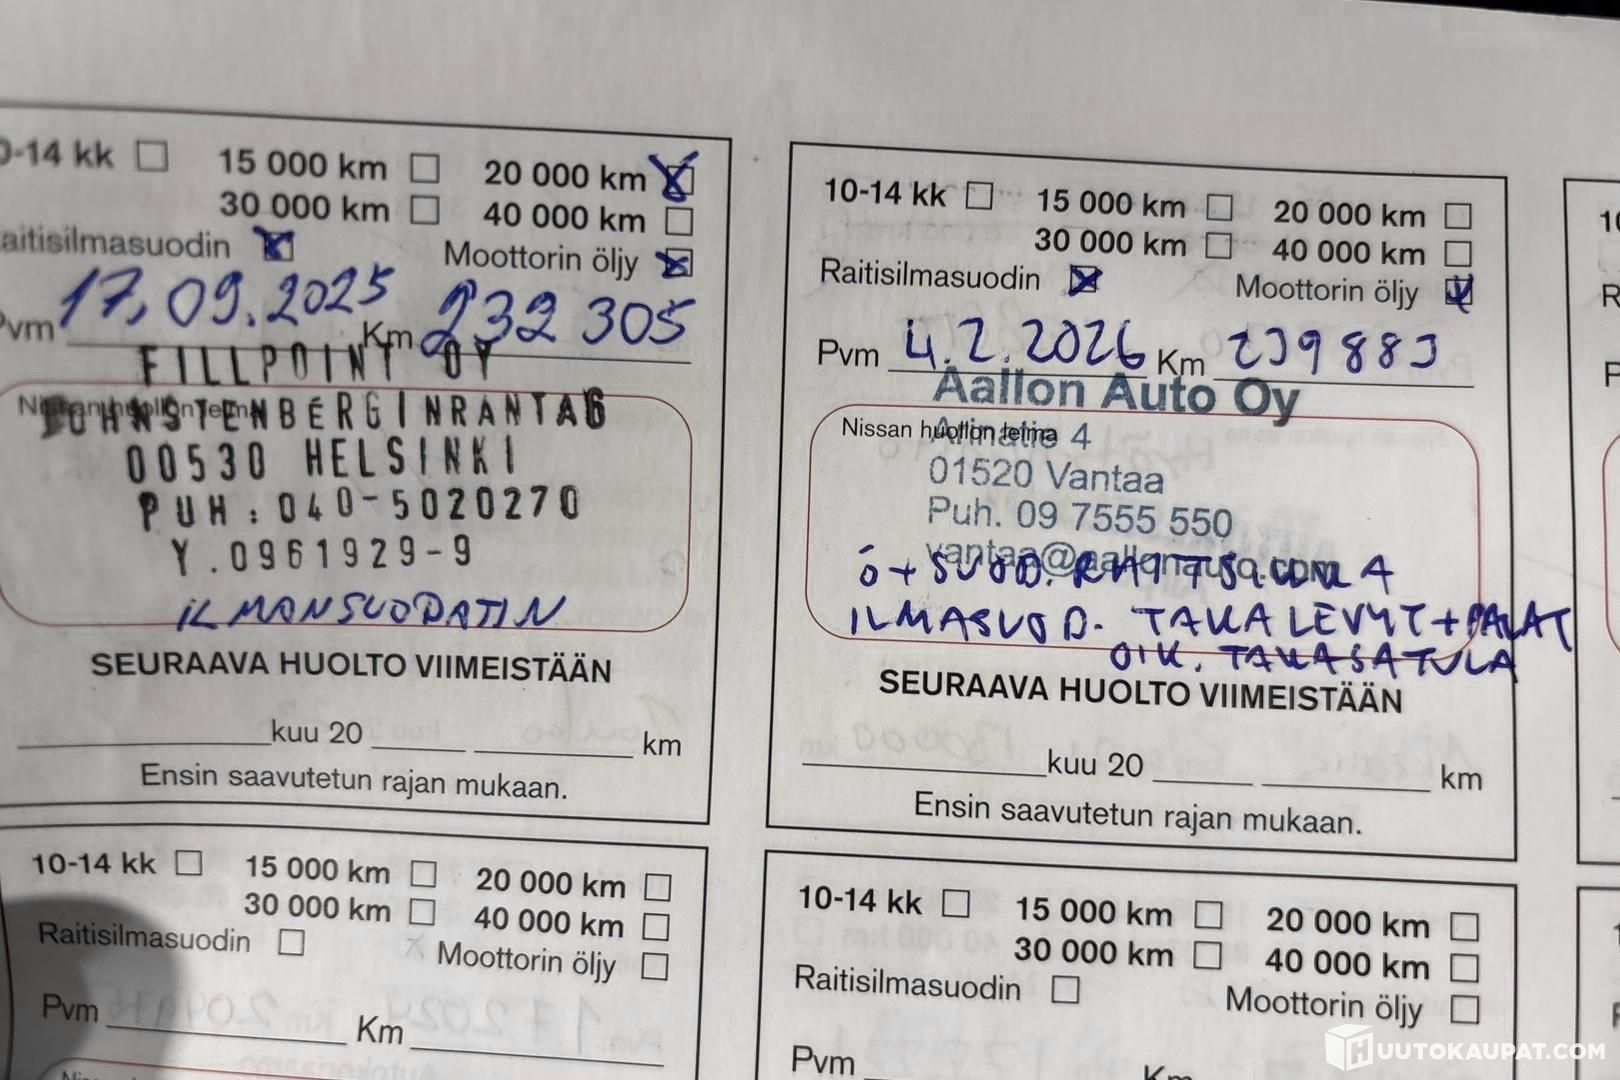 -14 kk 15 000 km 20 000 km
30 000 km 40 000 km
aitisilmasuodin Moottorin öljy
Pvm 17.09.2025 Km 232 305
FILLPOINT OY
00530 HELSINKI
PUH: 040-5020270
Y.0961929-9
ILMANSUODATIN
SEURAAVA HUOLTO VIIMEISTÄÄN
kuu 20 km
Ensin saavutetun rajan mukaan.
10-14 kk 15 000 km 20 000 km
30 000 km 40 000 km
Raitisilmasuodin Moottorin öljy
Pvm 4.2.2026 Km 239883
Aallon Auto Oy
Nissan huollon leima 4
01520 Vantaa
Puh. 09 7555 550
vantaa@aallonauto.com
Ö+SUOD.
ILMASUOD. TAKALEVYT+PALAT
OIK. TAKASATULA
SEURAAVA HUOLTO VIIMEISTÄÄN
kuu 20 km
Ensin saavutetun rajan mukaan.
10-14 kk 15 000 km 20 000 km
30 000 km 40 000 km
Raitisilmasuodin Moottorin öljy
Pvm Km
10-14 kk 15 000 km 20 000 km
30 000 km 40 000 km
Raitisilmasuodin Moottorin öljy
Pvm Km
HUUTOKAUPAT.COM